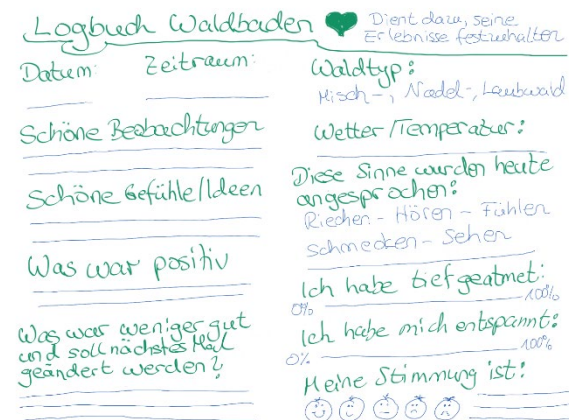 Logbuch Waldbaden
Dient dazu, seine
Erlebnisse festzuhalten
Datum: Zeitraum:
Schöne Beobachtungen
Schöne Gefühle/Ideen
Was war positiv
Was war weniger gut
und soll nächstes Mal
geändert werden?
Waldtyp:
Misch-, Nadel-, Laubwald
Wetter/Temperatur:
Diese Sinne wurden heute
angesprochen:
Riechen - Hören - Fühlen
Schmecken - Sehen
Ich habe tief geatmet:
0% 100%
Ich habe mich entspannt:
0% 100%
Meine Stimmung ist: